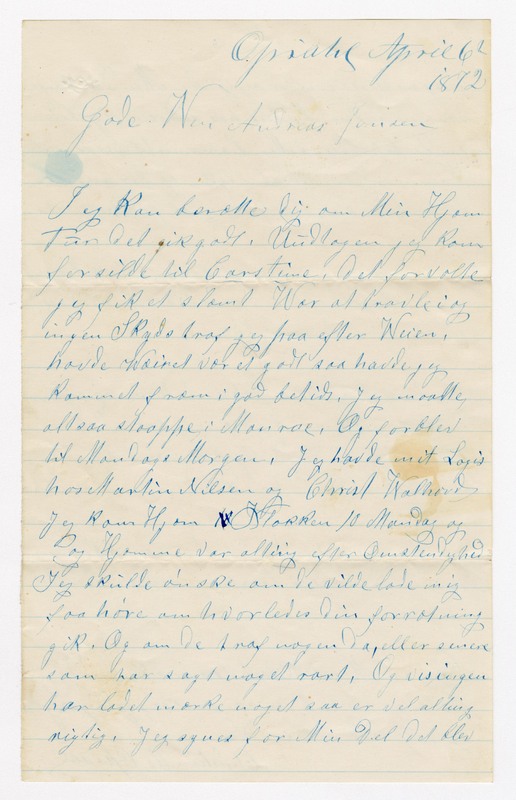 Opdahl April 6t
1872
Gode Ven Andreas Jensen
Jeg kan berætte dig om Min Hjem
Tur det gik godt, Undtagen jeg kom
forsilde til Carstime, det forvolte
jeg fik et slæmt War at travle i og
ingen Skyds traf jeg paa efter Veien,
havde Wæiret været godt saa havde jeg
kommet fræm i god betids. Jeg maatte
altsaa stoppe i Monroe. Og forblev
til Mandags Morgen, Jeg havde mit Logis
hos Martin Nilsen og Christ
Jeg kom Hjem Klokken 10 Mandag og
og Hjemme var alting efter Omstendighed
Jeg skulde ønske om de vilde lade mig
faa høre om hvorledes din forrætning
gik. Og om de traf nogen da, eller senere
som har sagt noget vort, Og vis ingen
har ladet mærke noget saa er vel alting
rigtig. Jeg synes for Min Del det blev